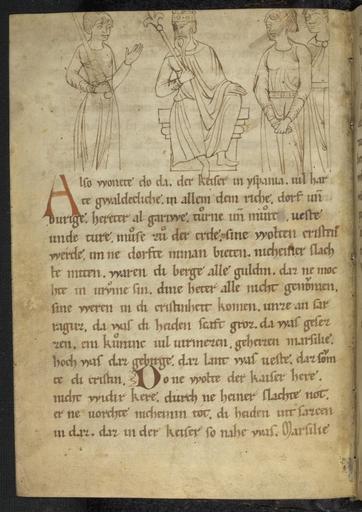 Also wonete do da. der keiser in yspania. uil har
te gwaldecliche. in allem dem riche. dorf uñ
burige. hereter al garwe. túrne uñ múre ueste
unde ture. můse zů der erde. sine wolten cristen
werde. im ne dorfte niman bieten. nicheiner slach
te miten. waren di berge alle guldin. dar ne moc
hte in wme sin. dine heter alle nicht genůmen.
sine weren in di cristinheit komen. unze an sar
raguz. da was di heiden scaft groz. da was geser
zen. ein kůninc uil uirmezen. geheizen marsilie.
hoch was daz gebirge. daz lant was ueste. daz som
te di cristin. Do ne wolte der kaiser here.
nicht widir kere. durch ne heiner slachte not.
er ne uorchte nicheinin tot. di heiden uñ sarcen
in dar. daz in der keiser so nahe was. Marsilie